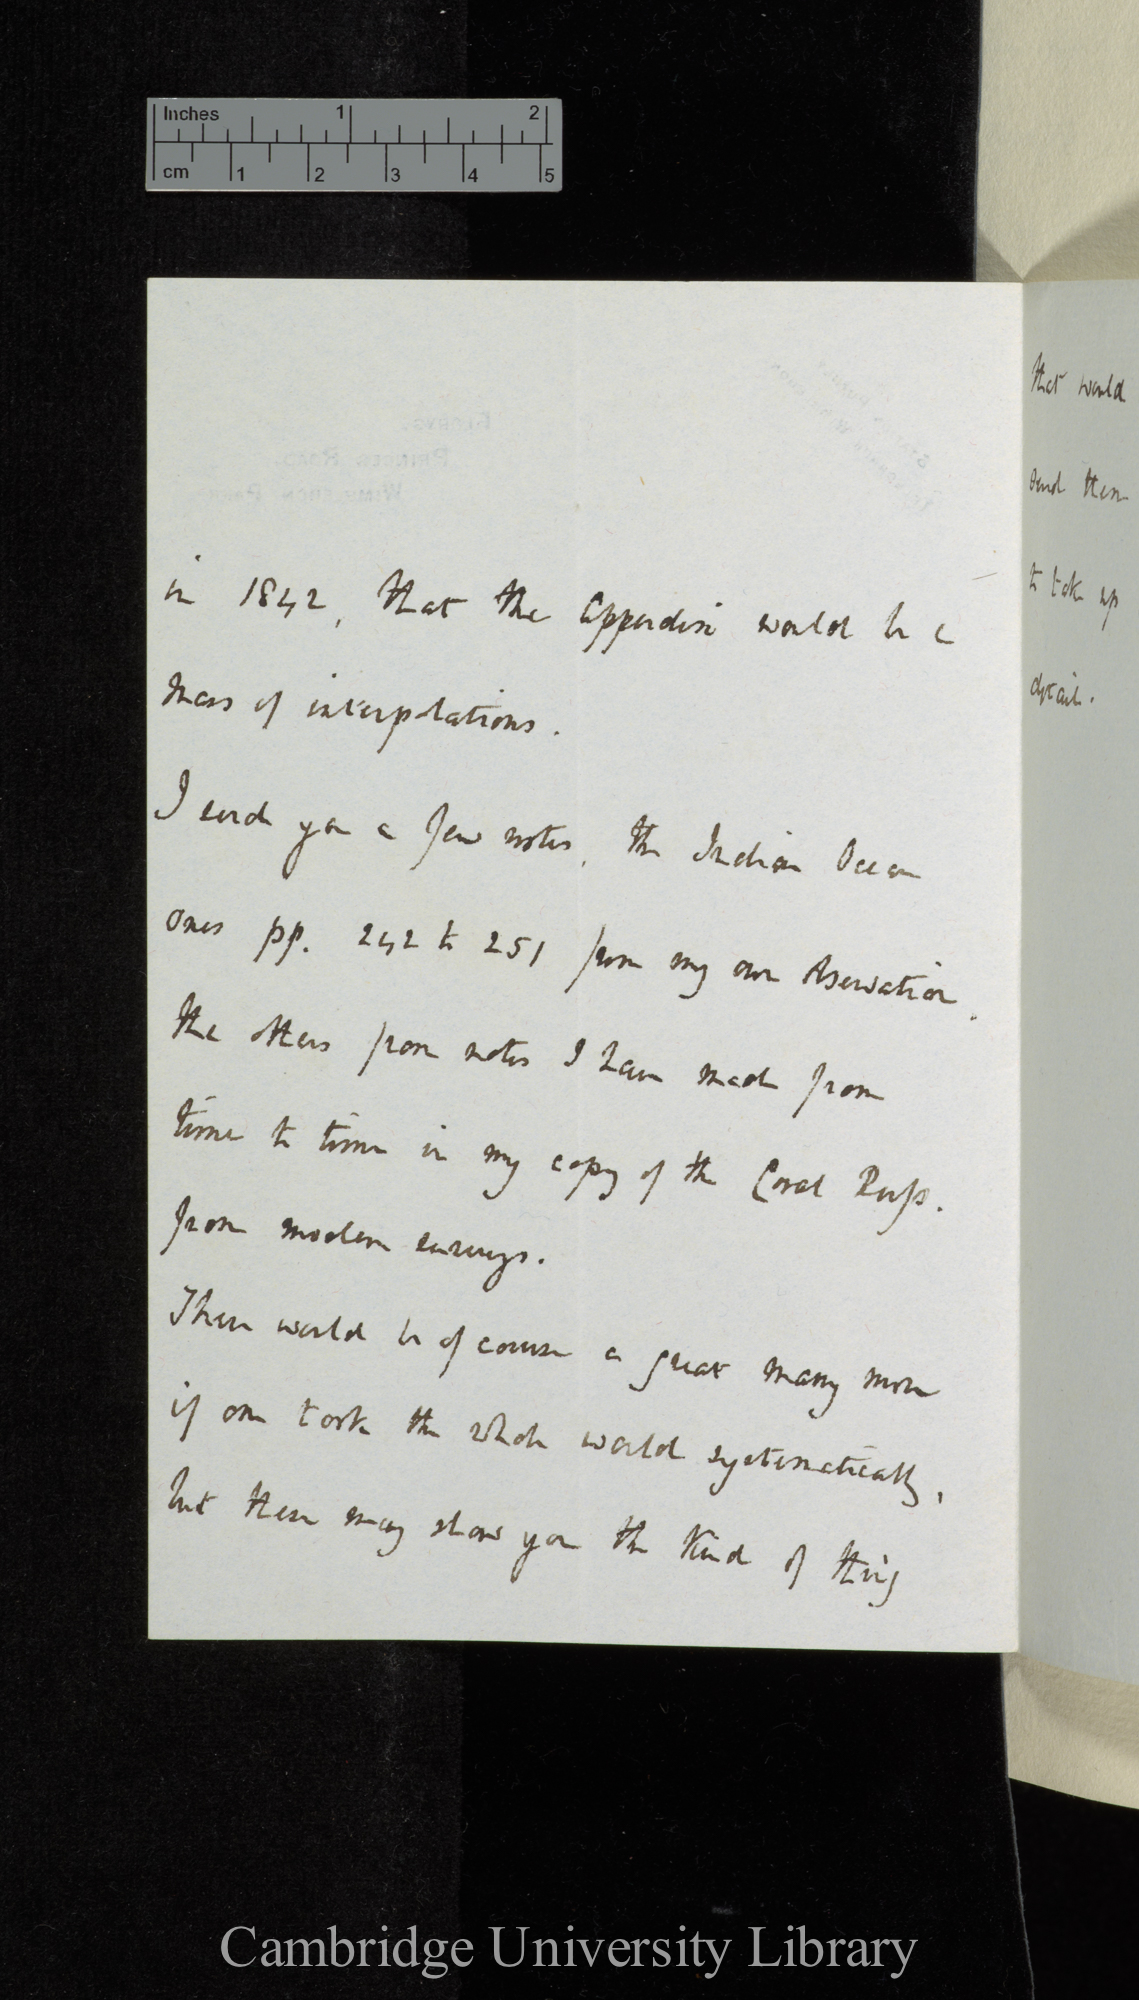 Inches 1 2
cm 1 2 3 4 5
in 1842, that the Appendix would be a
mass of interpolations.
I send you a few notes, the Indian Ocean
ones pp. 242 to 251 from my own observation,
the others from notes I have made from
time to time in my copy of the Coral Reefs.
from modern surveys.
There would be of course a great many more
if one took the whole world systematically,
but these may show you the kind of thing
that would
send them
to take up
detail.
Cambridge University Library